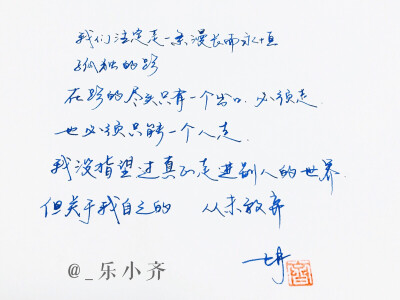 我们注定走一条漫长而永恒
孤独的路
在路的尽头只有一个出口 必须走
也必须只能一个人走
我没指望过真正走进别人的世界
但关于我自己的 从未放弃
@_乐小齐